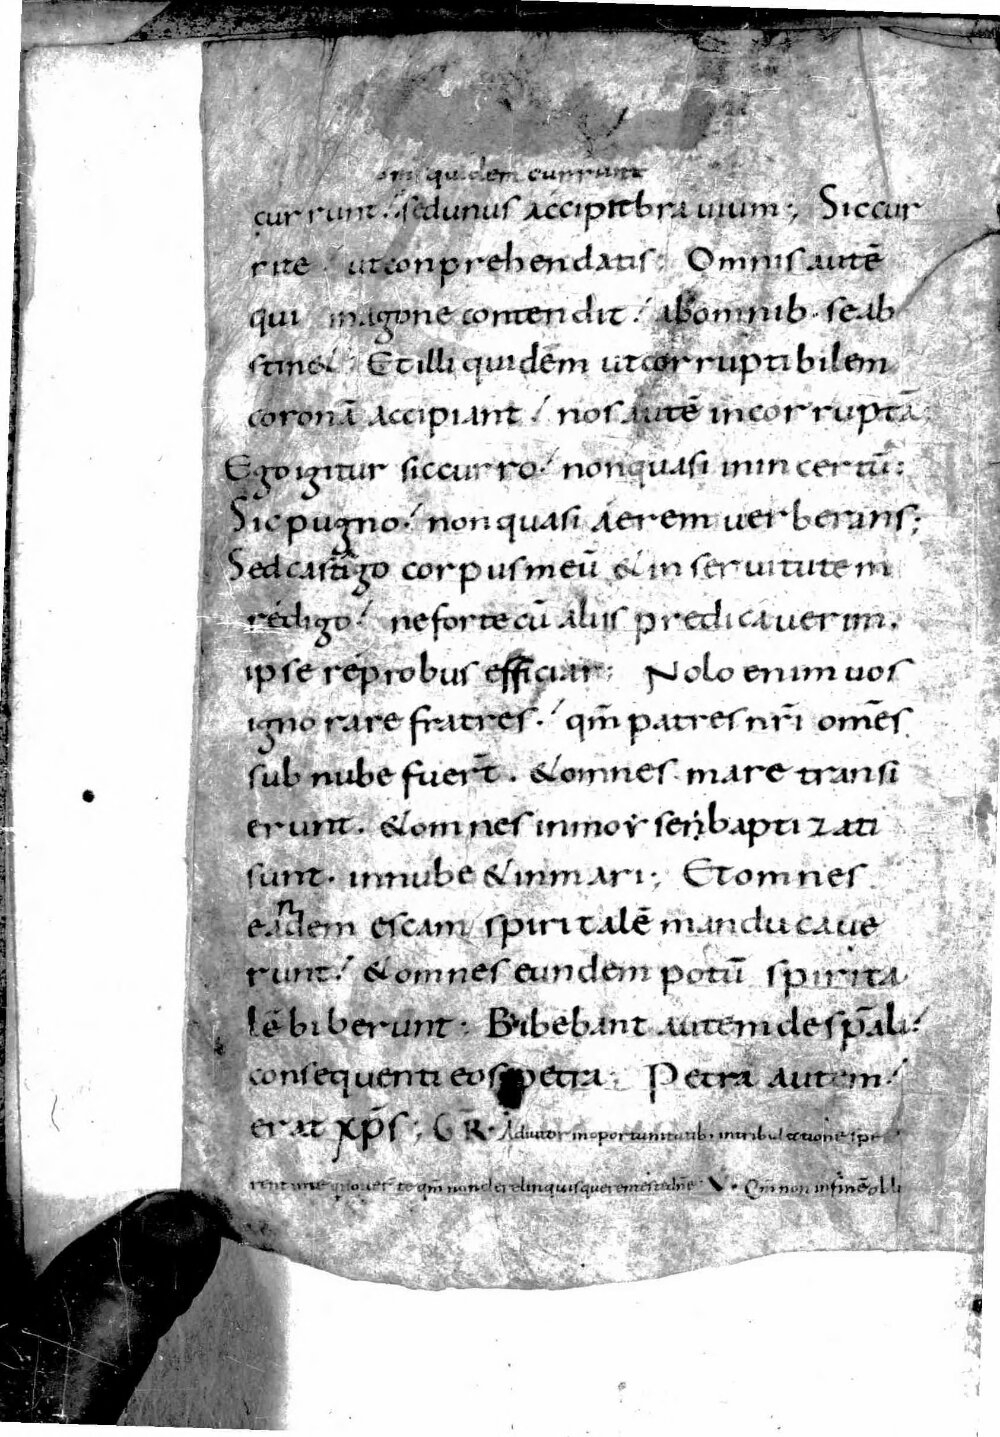 omnes quidem currunt
currunt. sed unus accipit bravium; Sic cur
rite ut conprehendatis; Omnis autē
qui in agone contendit. ab omnib. se ab
stin&. Et illi quidem ut corruptibilem
coronā accipiant. nos autē incorruptā.
Ego igitur sic curro. non quasi in incertū;
Sic pugno. non quasi aerem verberans;
Sed castigo corpus meū & in servitutem
redigo. ne forte cū aliis predicaverim.
ipse reprobus efficiar; Nolo enim vos
ignorare fratres. qm̄ patres nr̄i omēs
sub nube fuer̄t. & omnes mare transi
erunt. & omnes in moysen baptizati
sunt. in nube & in mari; Et omnes
eandem escam spiritalē manducave
runt. & omnes eundem potū spirita
lē biberunt; Bibebant autem de sp̄ali.
consequenti eos petra; Petra autem.
erat xp̄s; GR. Adiutor in oportunitatib. in tribulatione spe
rent in te qui nover̄ te qm̄ non derelinquis querentes te dn̄e V. Qm̄ non in finē obli